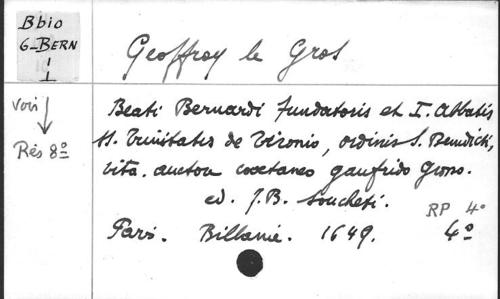 Bbio
G-BERN
1
Geoffroy le Gros
Voir
Rés 8º
Beati Bernardi fundatoris et I. Abbatis
SS. Trinitatis de Tironio, ordinis S. Benedicti,
vita. auctore coaetaneo gaufrido Grosso.
ed. J.B. Soucheti.
RP 4º
Paris. Billaine. 1649. 4º